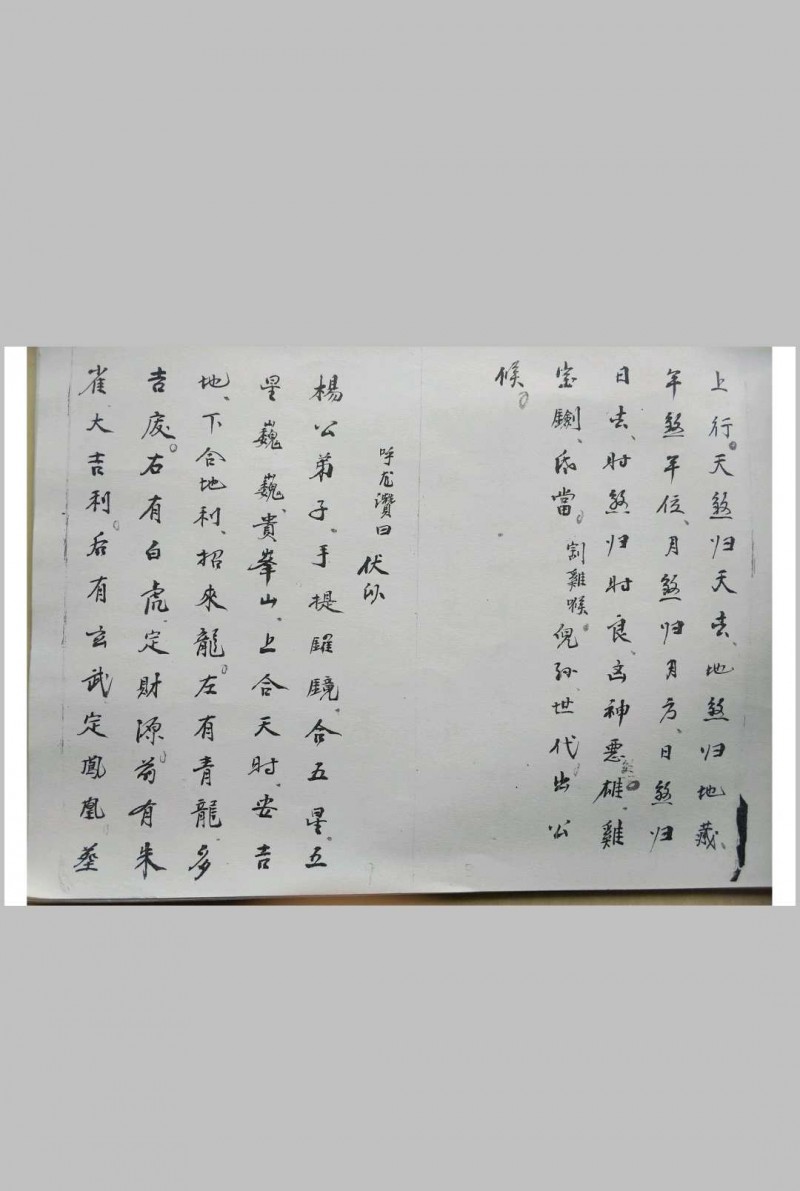 上行。天煞归天去、地煞归地藏、
年煞年位、月煞归月方、日煞归
日去、时煞归时良、凶神恶雄、雞
宝劍、底當。割雞喉。兒孙、世代出公
候。
呼龙讚曰 伏以
楊公弟子、手提羅鏡、合五星、五
星巍巍、貴峯山、上合天时、安吉
地、下合地利、招來龍。左有青龍、多
吉庆。右有白虎、定財源。前有朱
雀大吉利。后有玄武定鳳凰、